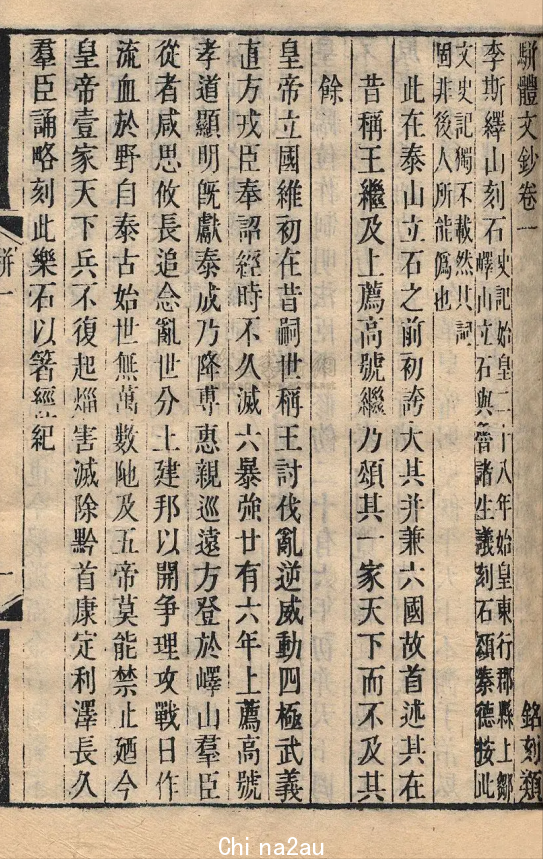 駢體文鈔卷一 銘刻類
李斯繹山刻石 史記始皇二十八年始皇東行郡縣上鄒
嶧山立石與魯諸生議刻石頌秦德按此
文史記獨不載然其詞
固非後人所能僞也
此在泰山立石之前初誇大其并兼六國故首述其在
昔稱王繼及上薦高號繼乃頌其一家天下而不及其
餘
皇帝立國維初在昔嗣世稱王討伐亂逆威動四極武義
直方戎臣奉詔經時不久滅六暴強廿有六年上薦高號
孝道顯明旣獻泰成乃降專惠親巡遠方登於嶧山羣臣
從者咸思攸長追念亂世分土建邦以開爭理攻戰日作
流血於野自泰古始世無萬數陁及五帝莫能禁止廼今
皇帝壹家天下兵不復起烖害滅除黔首康定利澤長久
羣臣誦略刻此樂石以箸經紀
駢一
一
China2au